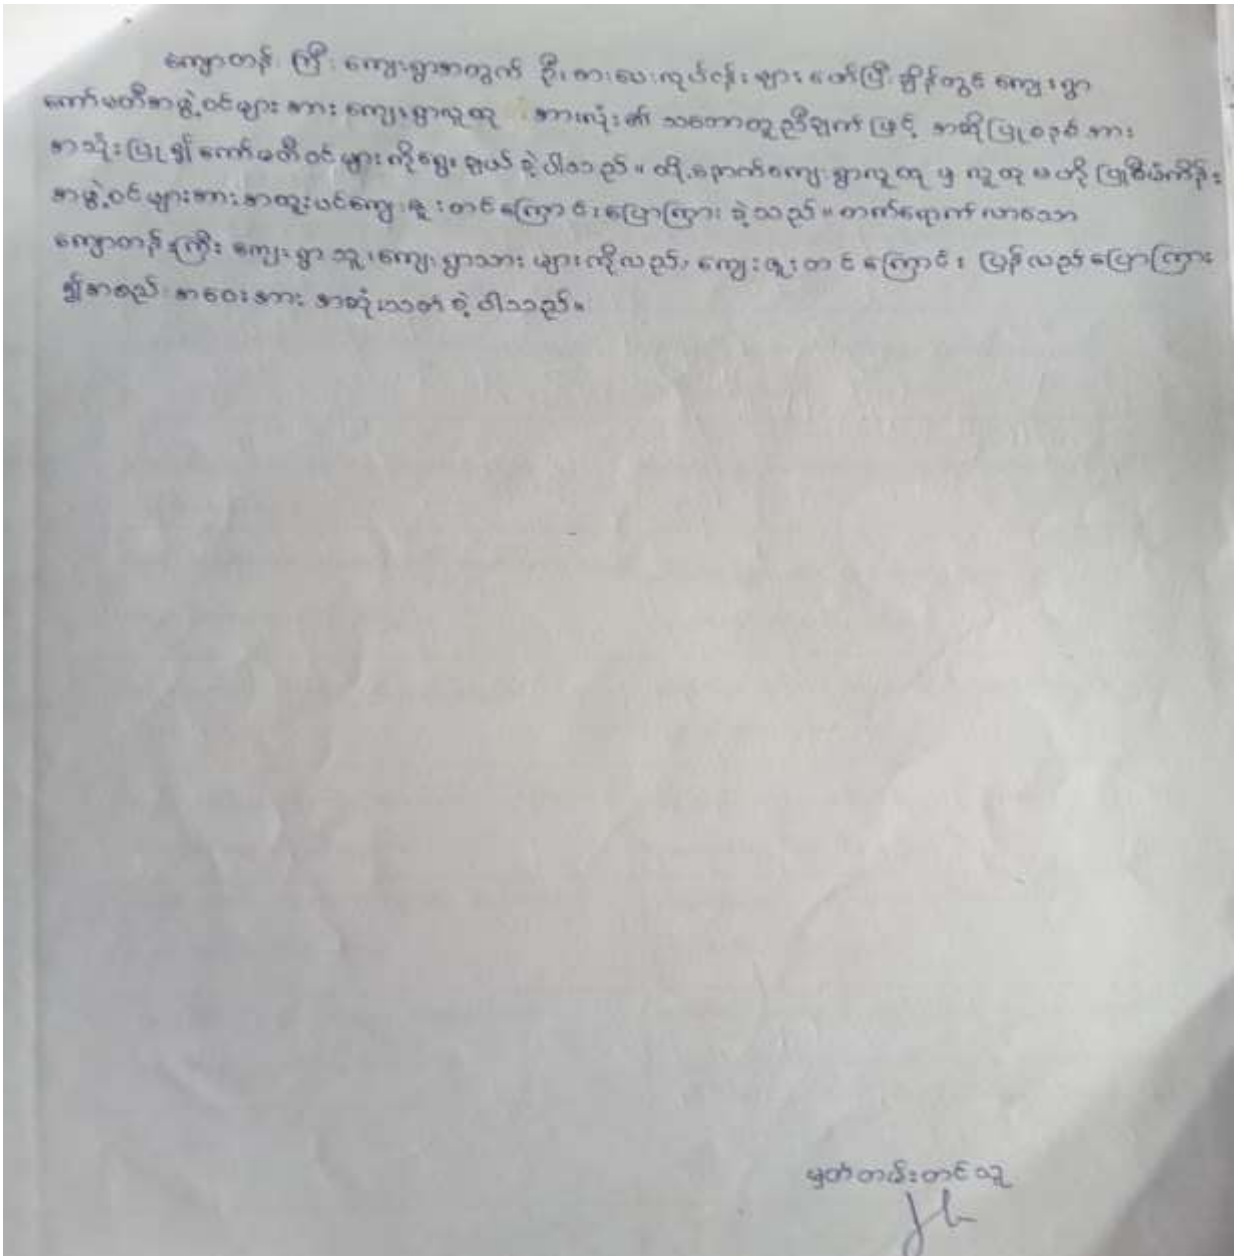 ကျောတန် ကြီး ကျေးရွာအတွက် ဦးစားပေးလုပ်ငန်းများ ဖော်ပြီးချိန်တွင် ကျေးရွာ
ကော်မတီအဖွဲ့ဝင်များ အား ကျေးရွာလူထု အားလုံး၏ သဘောတူညီချက် ဖြင့် အဆိုပြုစနစ် အား
အသုံးပြု၍ ကော်မတီဝင်များ ကိုရွေးချယ်ခဲ့ပါသည်။ ထို့နောက်ကျေးရွာလူထု မှ လူထု ဗဟိုပြုစီမံကိန်း
အဖွဲ့ဝင်များအား အထူးပင်ကျေးဇူးတင်ကြောင်းပြောကြားခဲ့သည်။ တက်ရောက်လာသော
ကျောတန် ကြီး ကျေးရွာသူ၊ကျေးရွာသား များကိုလည်း ကျေးဇူးတင်ကြောင်း ပြန်လည်ပြောကြား
၍အစည်းအဝေးအား အဆုံးသတ်ခဲ့ပါသည်။
မှတ်တမ်းတင်သူ